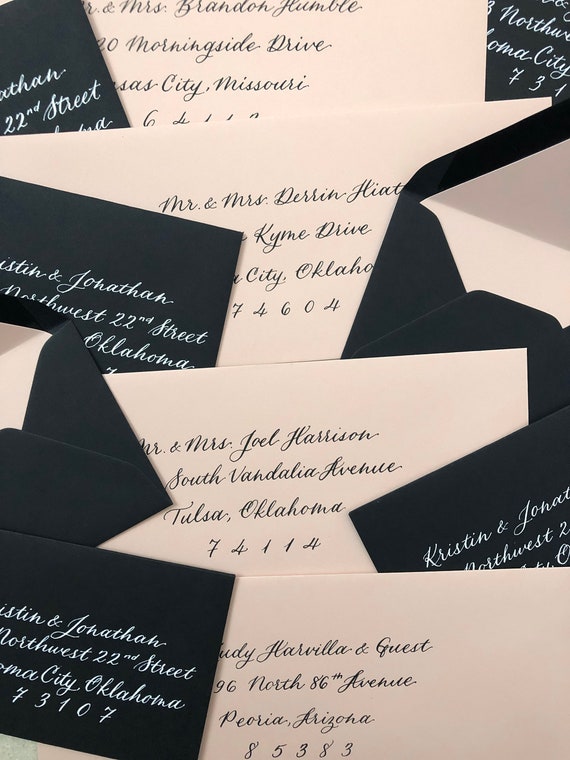 Mr. & Mrs. Brandon Humble
20 Morningside Drive
City, Missouri
Jonathan
22nd Street
Oklahoma
City
7 3 1
Mr. & Mrs. Derrin Hiat
Kyme Drive
City, Oklaho
7 4 6 0 4
Kristin & Jonathan
Northwest 22nd Street
Oklahoma
Mr. & Mrs. Joel Harrison
South Vandalia Avenue
Tulsa, Oklahoma
7 4 1 1 4
Kristin & Jonat
Northwest 2
Kristin & Jonathan
Northwest 22nd Street
oma City Oklahoma
7 3 1 0 7
udy Harvilla & Guest
96 North 86th Avenue
Peoria, Arizona
8 5 3 8 3